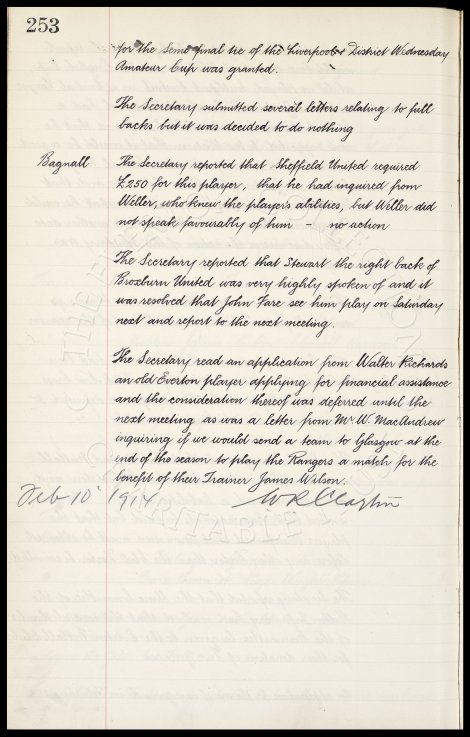 253
for the Semi final tie of the Liverpool & District Wednesday
Amateur Cup was granted.
The Secretary submitted several letters relating to full
backs but it was decided to do nothing
Bagnall
The Secretary reported that Sheffield United required
£250 for this player, that he had inquired from
Weller, who knew the player's abilities, but Weller did
not speak favourably of him no action
The Secretary reported that Stewart the right back of
Broxburn United was very highly spoken of and it
was resolved that John Fare see him play on Saturday
next and report to the next meeting.
The Secretary read an application from Walter Richards
an old Everton player applying for financial assistance
and the consideration thereof was deferred until the
next meeting as was a letter from Mr W. MacAndrew
inquiring if we would send a team to Glasgow at the
end of the season to play the Rangers a match for the
benefit of their Trainer James Wilson.
Feb 10 1914 W R Clayton